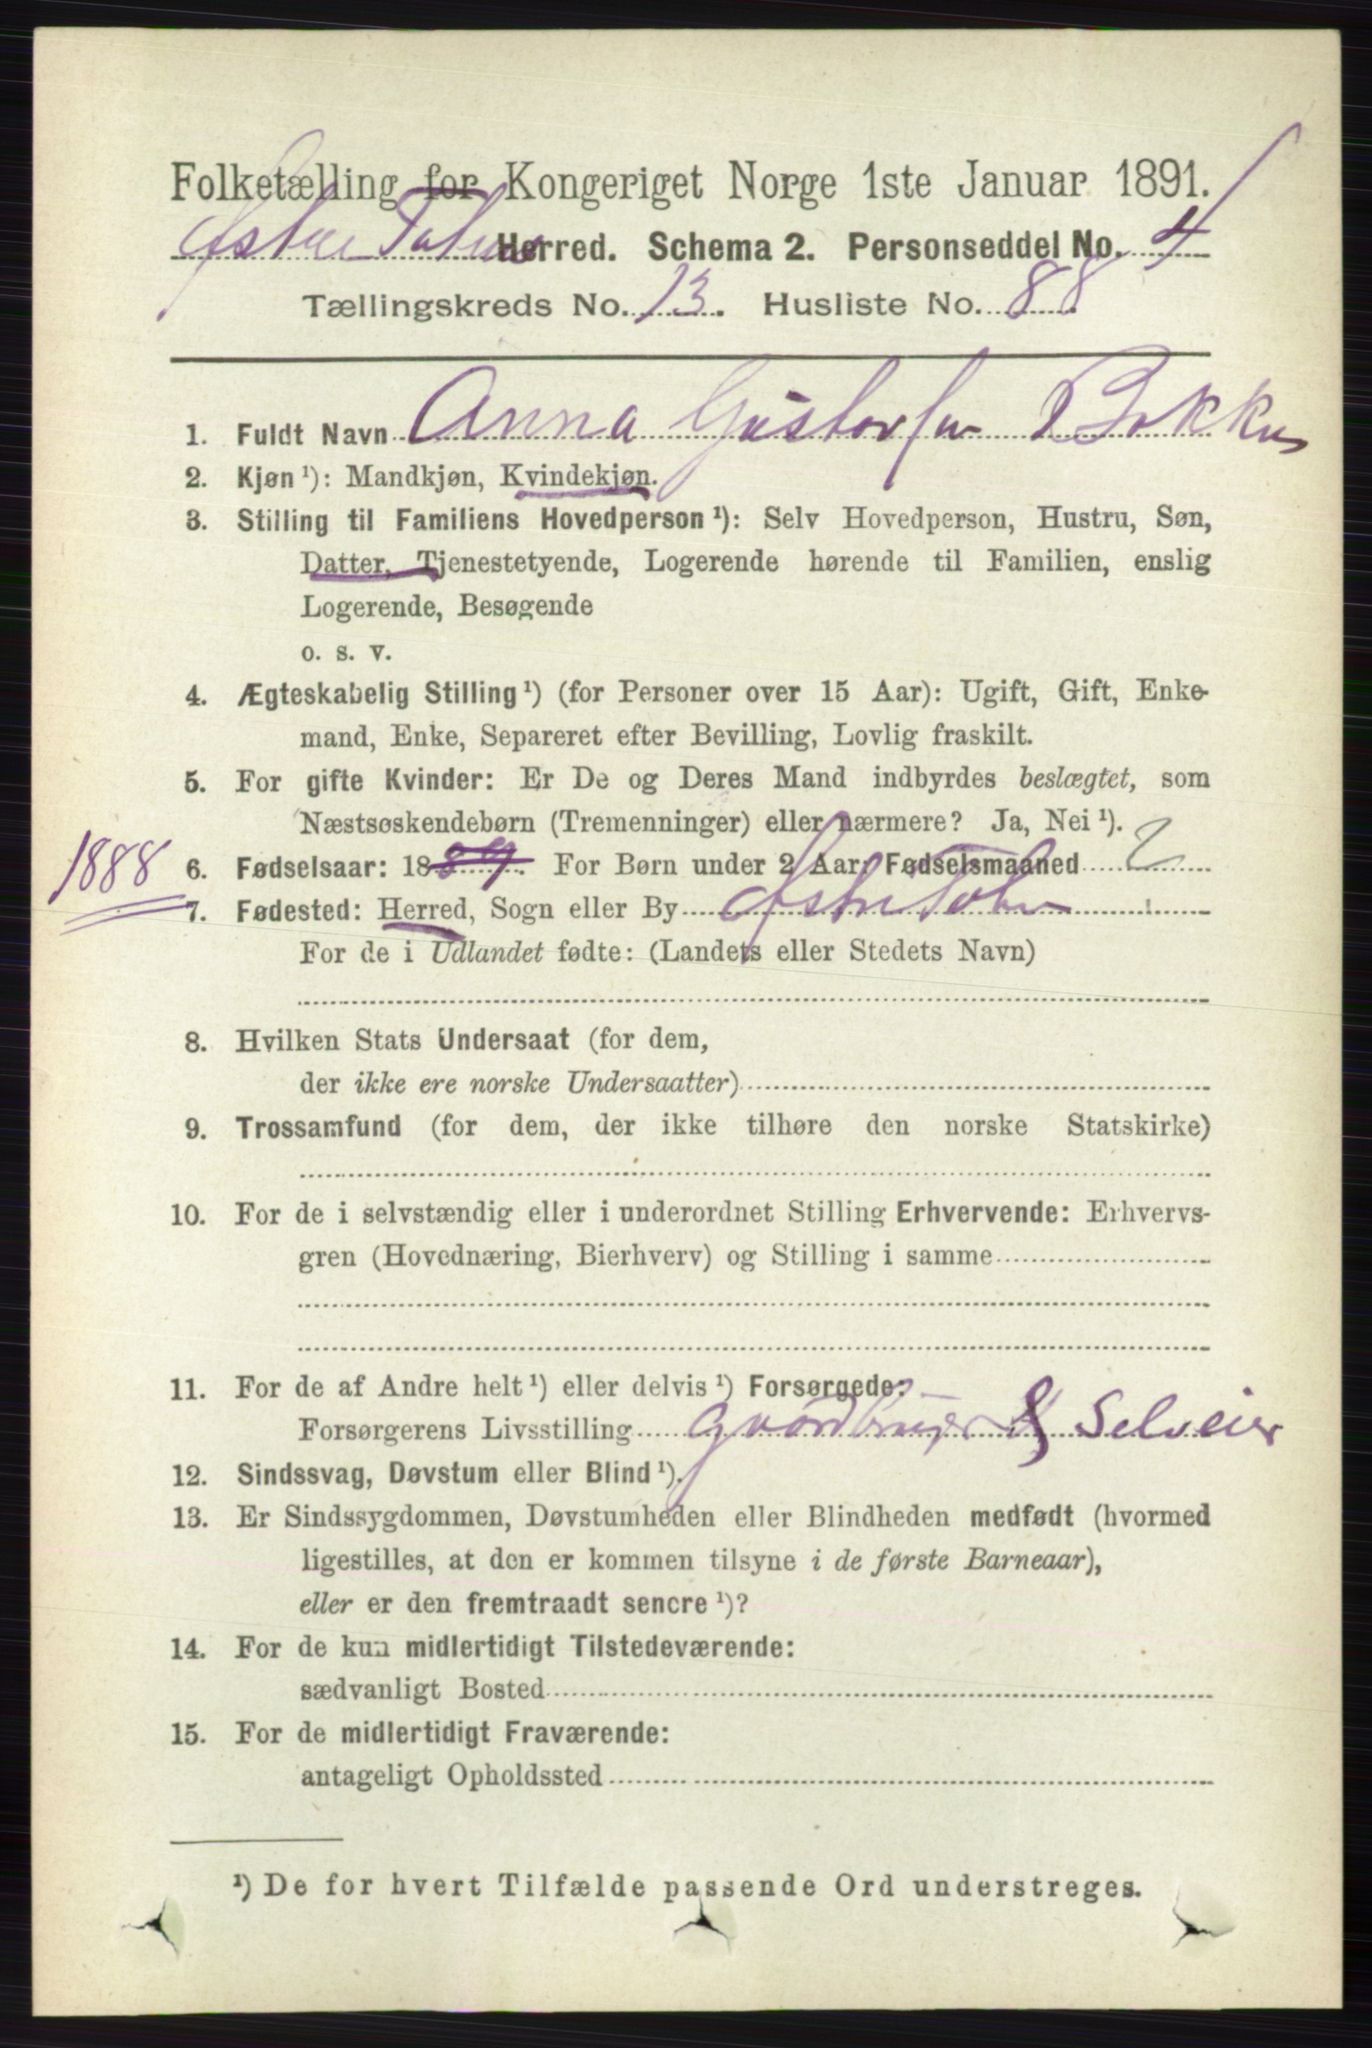 Folketælling for Kongeriget Norge 1ste Januar 1891.
Herred. Schema 2. Personseddel No. 4
Tællingskreds No. 13. Husliste No. 88.
1. Fuldt Navn Anna
2. Kjøn ¹): Mandkjøn, Kvindekjøn.
3. Stilling til Familiens Hovedperson ¹): Selv Hovedperson, Hustru, Søn,
Datter, Tjenestetyende, Logerende hørende til Familien, enslig
Logerende, Besøgende
o. s. v.
4. Ægteskabelig Stilling ¹) (for Personer over 15 Aar): Ugift, Gift, Enke-
mand, Enke, Separeret efter Bevilling, Lovlig fraskilt.
5. For gifte Kvinder: Er De og Deres Mand indbyrdes beslægtet, som
Næstsøskendebørn (Tremenninger) eller nærmere? Ja, Nei ¹).
1888
6. Fødselsaar: 1889. For Børn under 2 Aar: Fødselsmaaned 2
7. Fødested: Herred, Sogn eller By
For de i Udlandet fødte: (Landets eller Stedets Navn)
8. Hvilken Stats Undersaat (for dem,
der ikke ere norske Undersaatter)
9. Trossamfund (for dem, der ikke tilhøre den norske Statskirke)
10. For de i selvstændig eller i underordnet Stilling Erhvervende: Erhvervs-
gren (Hovednæring, Bierhverv) og Stilling i samme
11. For de af Andre helt ¹) eller delvis ¹) Forsørgede:
Forsørgerens Livsstilling Gaardbruger & Selveier
12. Sindssvag, Døvstum eller Blind ¹).
13. Er Sindssygdommen, Døvstumheden eller Blindheden medfødt (hvormed
ligestilles, at den er kommen tilsyne i de første Barneaar),
eller er den fremtraadt sencre ¹)?
14. For de kun midlertidigt Tilstedeværende:
sædvanligt Bosted
15. For de midlertidigt Fraværende:
antageligt Opholdssted
¹) De for hvert Tilfælde passende Ord understreges.